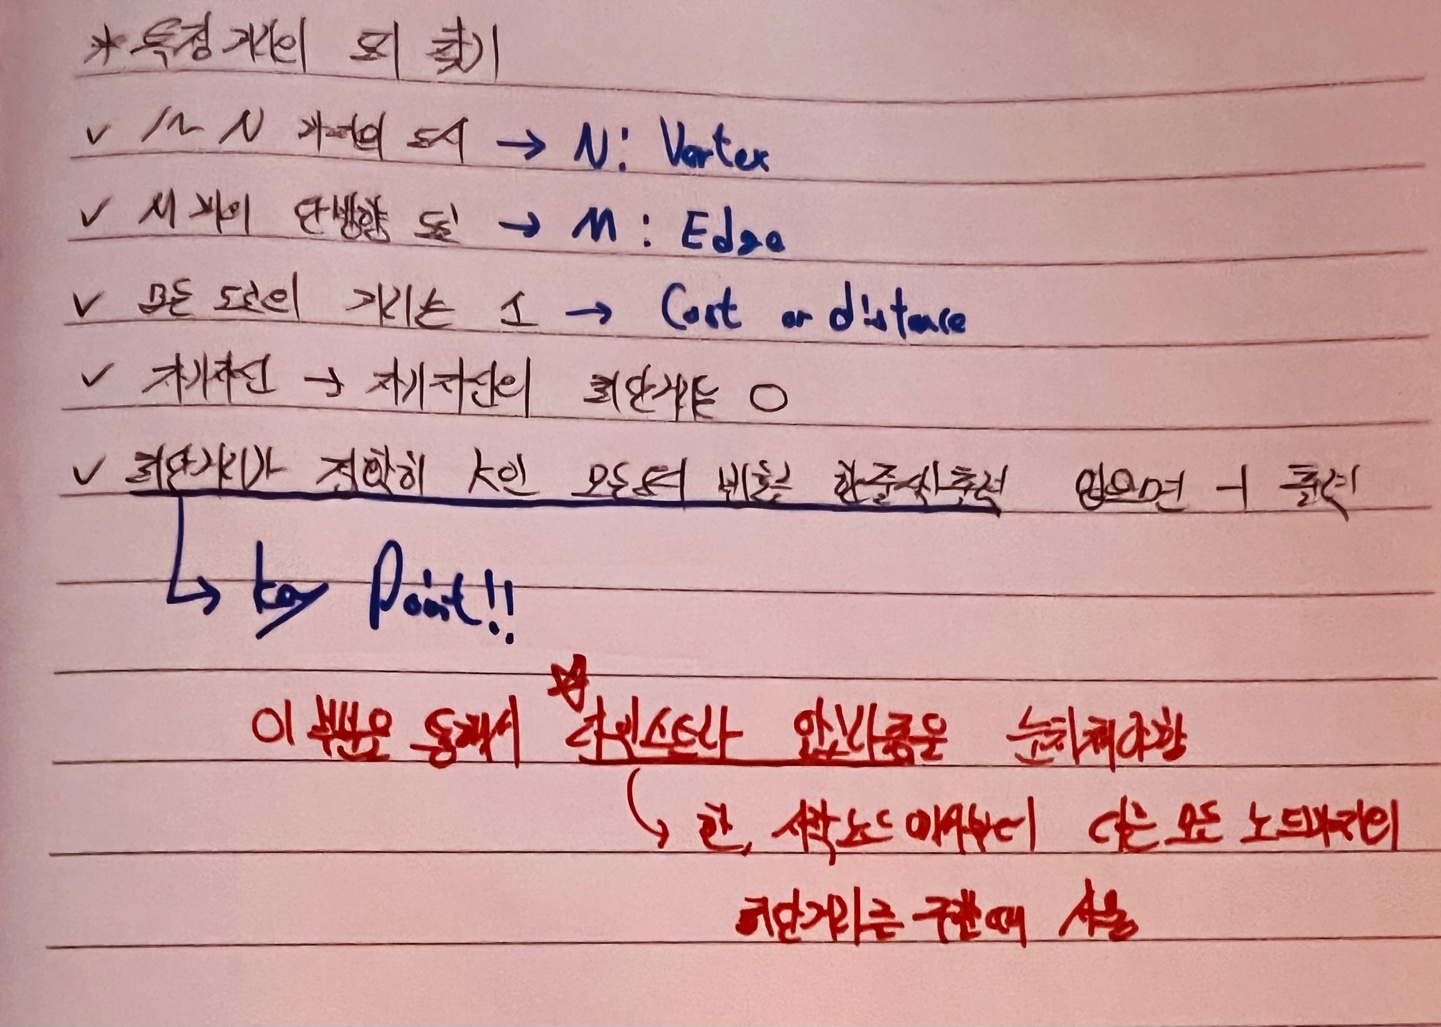 * 특정 거리의 도시 찾기
✓ 1~N 까지의 도시 → N: Vertex
✓ M개의 단방향 도로 → M: Edge
✓ 모든 도로의 거리는 1 → Cost or distance
✓ 자기자신 → 자기자신의 최단거리는 0
✓ 최단거리가 정확히 K인 모든도시 번호를 한줄씩 출력 없으면 -1 출력
↳ key Point!!
이 부분을 통해서 ☆다익스트라 알고리즘을 눈치채야함
↳ 한, 시작노드 에서부터 다른 모든 노드까지의
최단거리를 구할때 사용